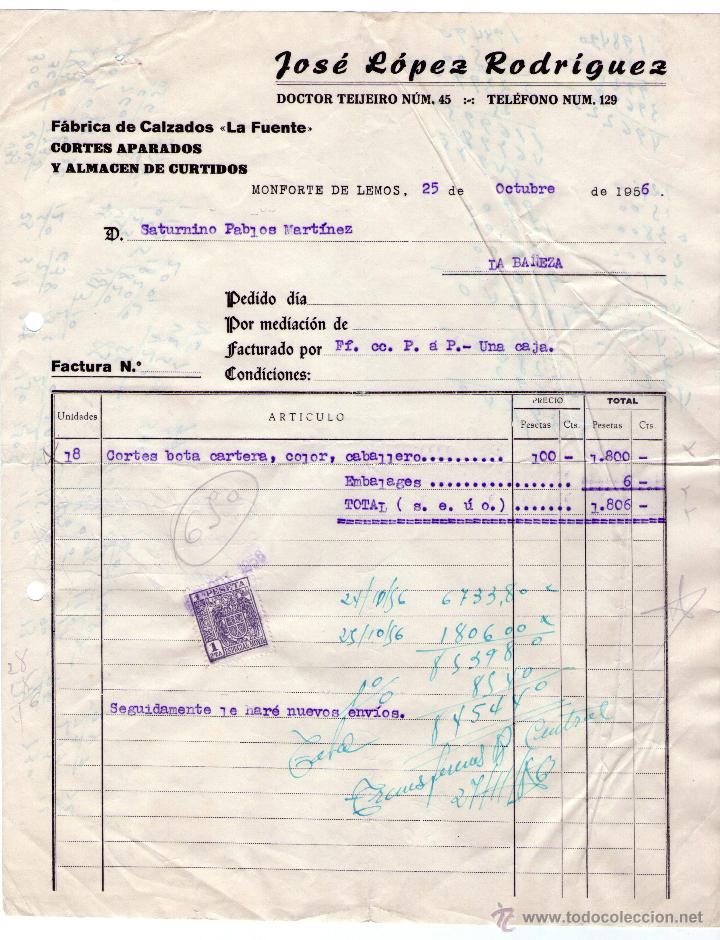 José López Rodríguez
DOCTOR TEIJEIRO NÚM. 45 :-: TELÉFONO NUM. 129
Fábrica de Calzados «La Fuente»
CORTES APARADOS
Y ALMACEN DE CURTIDOS
MONFORTE DE LEMOS, 25 de Octubre de 1956.
D. Saturnino Pablos Martínez
LA BAÑEZA
Pedido día
Por mediación de
Facturado por Ff. cc. P. á P.- Una caja.
Factura N.º
Condiciones:
Unidades ARTICULO PRECIO TOTAL
Pesetas Cts. Pesetas Cts.
18 Cortes bota cartera, color, caballero.......... 100 - 1.800 -
Embalages ................ 6 -
TOTAL ( s. e. ú o.) ....... 1.806 -
1 PESETA
1 PTA ESPECIAL MOVIL
24/10/56 6733,80
25/10/56 1806 00
85398 0
1% 85 40
84544 0
Seguidamente le haré nuevos envíos.
Central
www.todocoleccion.net